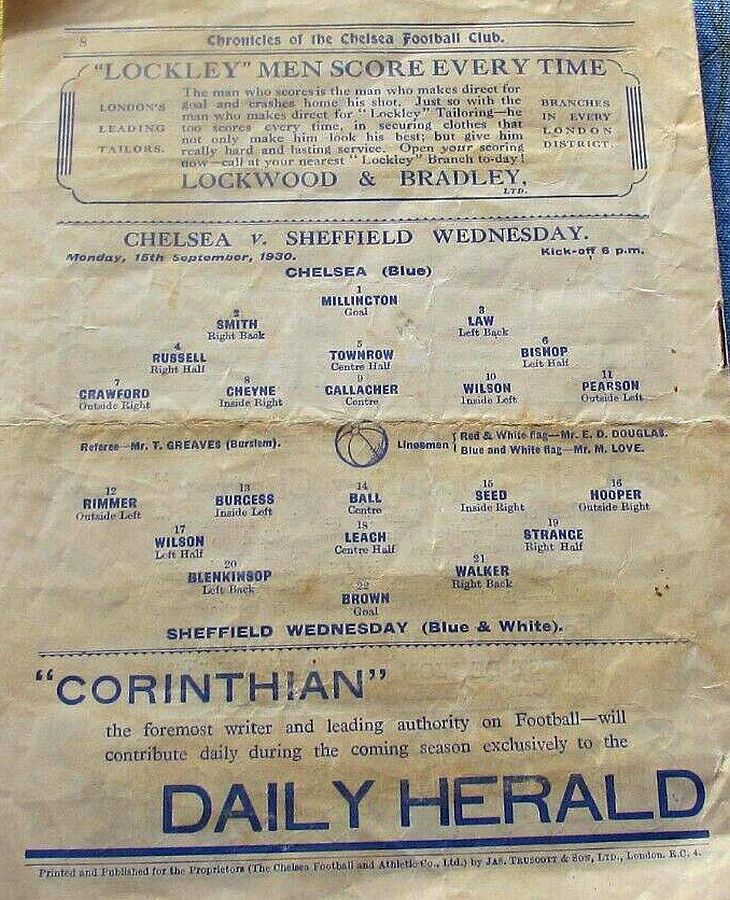 8
Chronicles of the Chelsea Football Club.
"LOCKLEY" MEN SCORE EVERY TIME
LONDON'S
LEADING
TAILORS.
The man who scores is the man who makes direct for
goal and crashes home his shot. Just so with the
man who makes direct for "Lockley" Tailoring—he
too scores every time, in securing clothes that
not only make him look his best; but give him
really hard and lasting service. Open your scoring
now—call at your nearest "Lockley" Branch to-day!
BRANCHES
IN EVERY
LONDON
DISTRICT.
LOCKWOOD & BRADLEY,
LTD.
CHELSEA v. SHEFFIELD WEDNESDAY.
Monday, 15th September, 1930.
Kick-off 6 p.m.
CHELSEA (Blue)
1
MILLINGTON
Goal
2
SMITH
Right Back
3
LAW
Left Back
4
RUSSELL
Right Half
5
TOWNROW
Centre Half
6
BISHOP
Left Half
7
CRAWFORD
Outside Right
8
CHEYNE
Inside Right
9
GALLACHER
Centre
10
WILSON
Inside Left
11
PEARSON
Outside Left
Referee—Mr. T. GREAVES (Burslem).
Linesmen
Red & White flag—Mr. E. D. DOUGLAS.
Blue and White flag—Mr. M. LOVE.
12
RIMMER
Outside Left
13
BURGESS
Inside Left
14
BALL
Centre
15
SEED
Inside Right
16
HOOPER
Outside Right
17
WILSON
Left Half
18
LEACH
Centre Half
19
STRANGE
Right Half
20
BLENKINSOP
Left Back
21
WALKER
Right Back
22
BROWN
Goal
SHEFFIELD WEDNESDAY (Blue & White).
"CORINTHIAN"
the foremost writer and leading authority on Football—will
contribute daily during the coming season exclusively to the
DAILY HERALD
Printed and Published for the Proprietors (The Chelsea Football and Athletic Co., Ltd.) by JAS. TRUSCOTT & SON, LTD., London. E.C. 4.